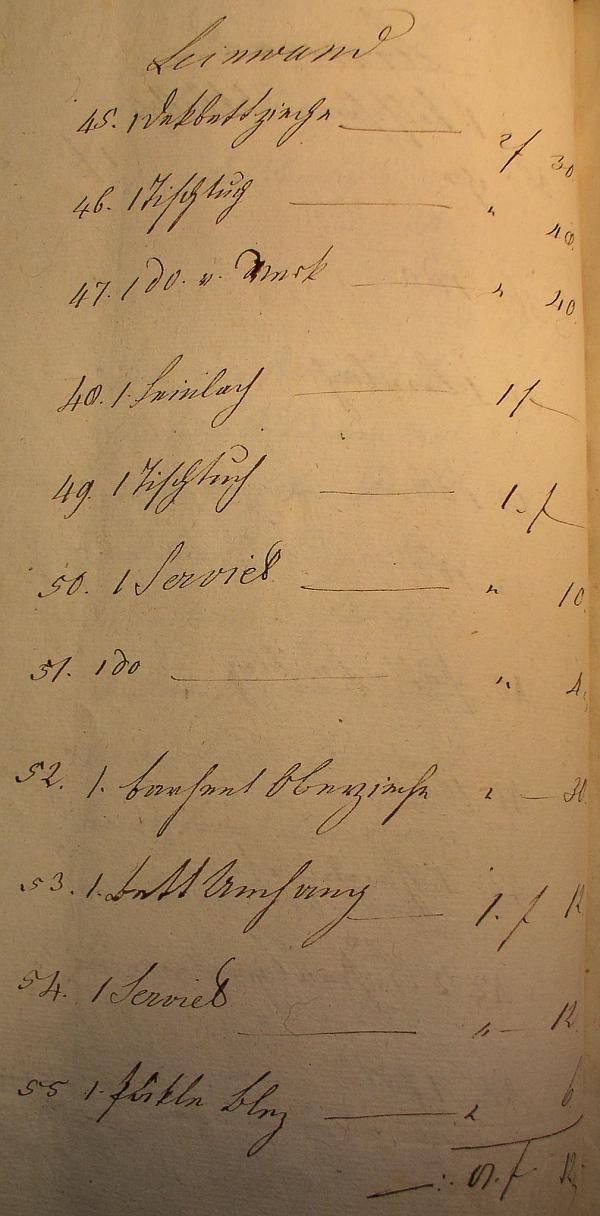 Leinwand
45. 1 Dekbettzieche 2 f 30
46. 1 Tischtuch " 48.
47. 1 do. v. " 40
48. 1 Leinlach 1 f
49. 1 Tischtuch 1. f
50. 1 Serviet " 10
51. 1 do "
52. 1. barhent Oberzieche " 30
53. 1. bett Umhang 1. f 12
54. 1 Serviet " 12
55 1. " 6
f 12